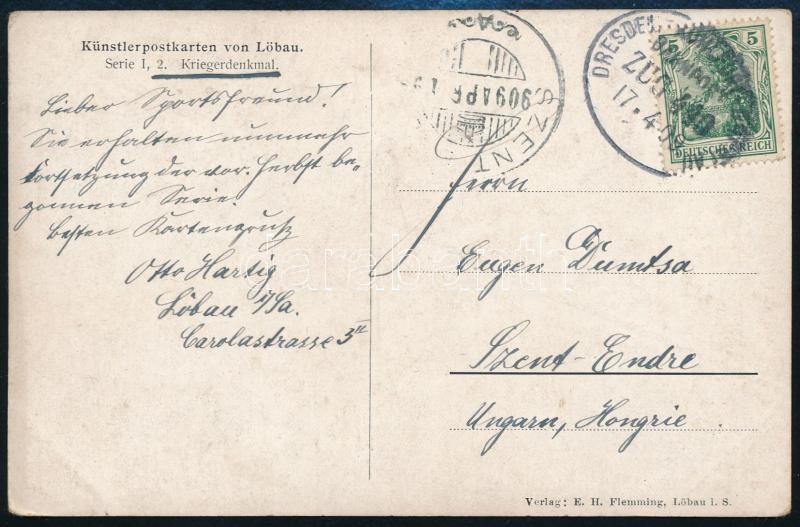 Künstlerpostkarten von Löbau.
Serie I, 2. Kriegerdenkmal.
Lieber Sportsfreund!
Sie erhalten nunmehr
Fortsetzung der vor. Herbst be-
gonnen Serie.
Besten Kartengruß
Otto Hartig
Löbau i/Sa.
Carolastrasse 3II
SZENT
909 APR
DRESDEN
ZUG
17.4.09
5 5
DEUTSCHES REICH
Herrn
Eugen Dumtsa
Szent-Endre
Ungarn, Hongrie
Verlag: E. H. Flemming, Löbau i. S.
darabanth